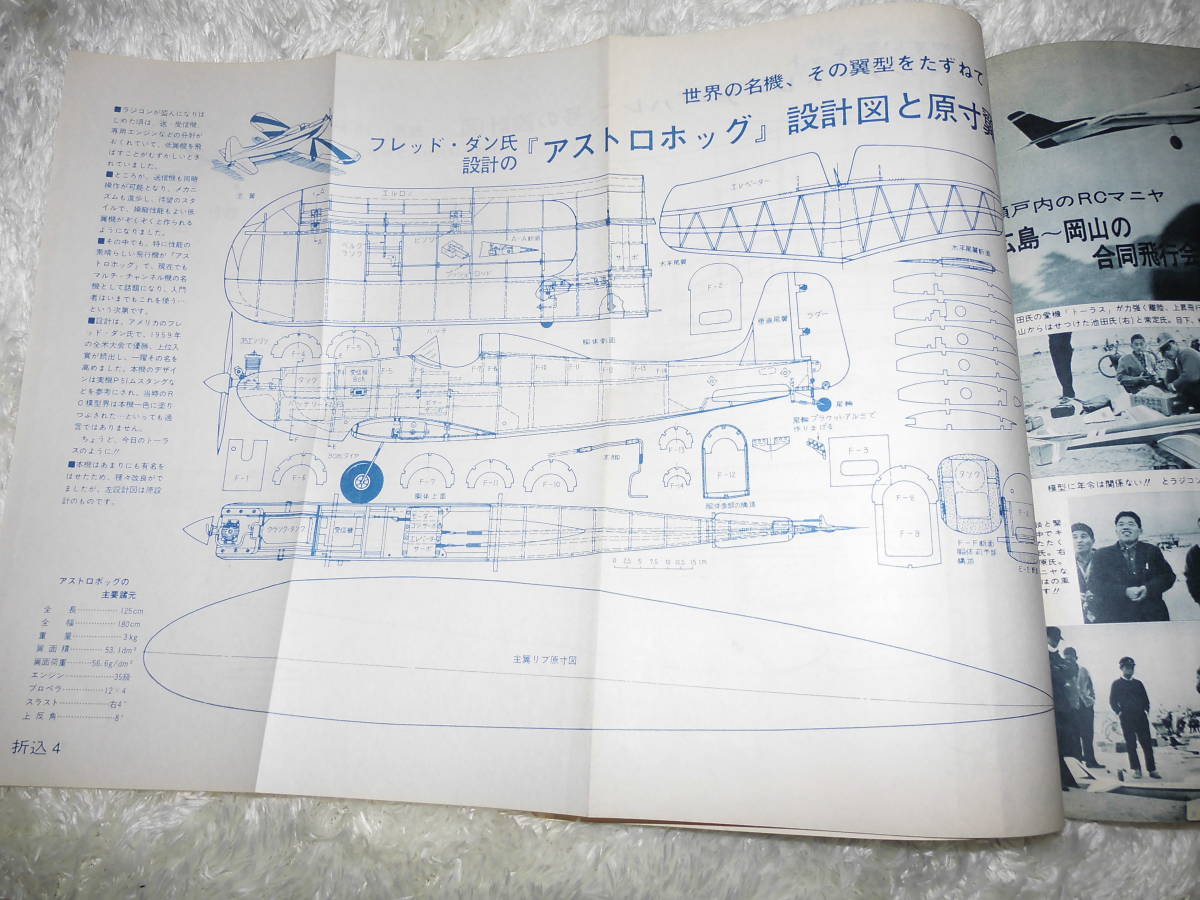 世界の名機、その翼型をたずねて
フレッド・ダン氏
設計の
『アストロホッグ』設計図と原寸翼
■ラジコンが盛んになりは
じめた頃は、送・受信機、
専用エンジンなどの分野が
おくれていて、低翼機を飛
ばすことがむずかしいとさ
れていました。
■ところが、送信機も同時
操作が可能となり、メカニ
ズムも進歩し、待望のスタ
イルで、操縦性能もよい低
翼機がぞくぞくと作られる
ようになりました。
■その中でも、特に性能の
素晴らしい飛行機が「アス
トロホッグ」で、現在でも
マルチ・チャンネル機の名
機として話題になり、入門
者はいまでもこれを使う‥
という次第です。
■設計は、アメリカのフレ
ッド・ダン氏で、1959年
の全米大会で優勝、上位入
賞が続出し、一躍その名を
高めました。本機のデザイ
ンは実機P51ムスタングな
どを参考にされ、当時のR
C模型界は本機一色に塗り
つぶされた…といっても過
言ではありません。
ちょうど、今日のトーラ
スのように!!
■本機はあまりにも有名を
はせたため、種々改良がで
ましたが、左設計図は原設
計のものです。
主翼
エルロン
ベルク
ランク
ヒンジ
A-A断面
プッシュロッド
サーボ
エレベーター
水平尾翼
水平尾翼断面
F-2
垂直尾翼
ラダー
ハッチ
胴体側面
35エンジン
F-4
F-5
タンク
受信機
Box
尾輪
尾輪ブラケットアルミで
作りまげる
F-1
F-6
F-7
F-11
F-10
F-13
F-14
F-12
F-3
F-8
F-9
タンク
胴体上面
主脚
胴体後部の構造
F-F断面
胴体前半部
構造
クランク・タンク
受信機
ラダー
エンジンサーボ
エレベーター
サーボ
0 2.5 5 7.5 10 12.5 15cm
主翼リブ原寸図
アストロホッグの
主要諸元
全長……………125cm
全幅……………180cm
重量……………3kg
翼面積…………53.1dm²
翼面荷重………56.6g/dm²
エンジン………………35級
プロペラ……………12×4
スラスト……………右4°
上反角………………8°
折込 4
瀬戸内のRCマニヤ
広島～岡山の
合同飛行会
田氏の愛機「トーラス」が力強く離陸、上昇飛行
山からはせつけた池田氏(右)と常定氏。目下、
模型に年令は関係ない!! とラジコン